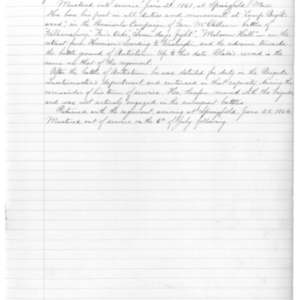 Mustered into service June 21. 1861. at Springfield, Mass.
He has his part in all duties and movements at "Camp Bright-
wood," in the Peninsula Campaign of Gen. McClellan battle of
Williamsburg, Fair Oaks, Seven days fight, "Malvern Hill" in the
retreat from Harrison's Landing to Washington and the advance towards
the battle ground of Antietam. Up to this date record is the
same as that of the regiment.
After the battle of Antietam he was detailed for duty in the Brigade
Department and continued in that capacity during the
remainder of his term of service. He therefore moved with the brigade
and was not actively engaged in the subsequent battles.
Returned with the regiment arriving at Springfield, June 25. 1864.
Mustered out of service on the 6th of July following.